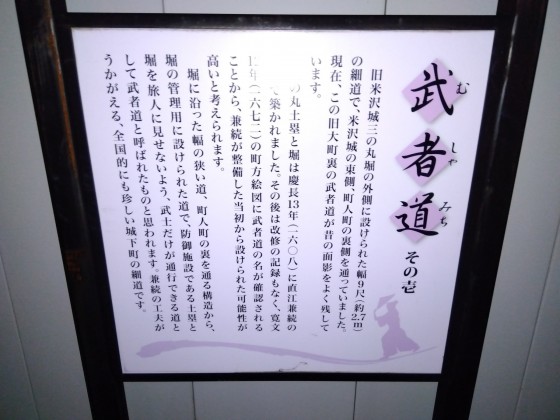 武者道
む しゃ みち
その壱
旧米沢城三の丸堀の外側に設けられた幅9尺(約2.7m)
の細道で、米沢城の東側、町人町の裏側を通っていました。
現在、この旧大町裏の武者道が昔の面影をよく残して
います。
の丸土塁と堀は慶長13年(一六〇八)に直江兼続の
で築かれました。その後は改修の記録もなく、寛文
12年(一六七二)の町方絵図に武者道の名が確認される
ことから、兼続が整備した当初から設けられた可能性が
高いと考えられます。
堀に沿った幅の狭い道、町人町の裏を通る構造から、
堀の管理用に設けられた道で、防御施設である土塁と
堀を旅人に見せないよう、武士だけが通行できる道と
して武者道と呼ばれたものと思われます。兼続の工夫が
うかがえる、全国的にも珍しい城下町の細道です。